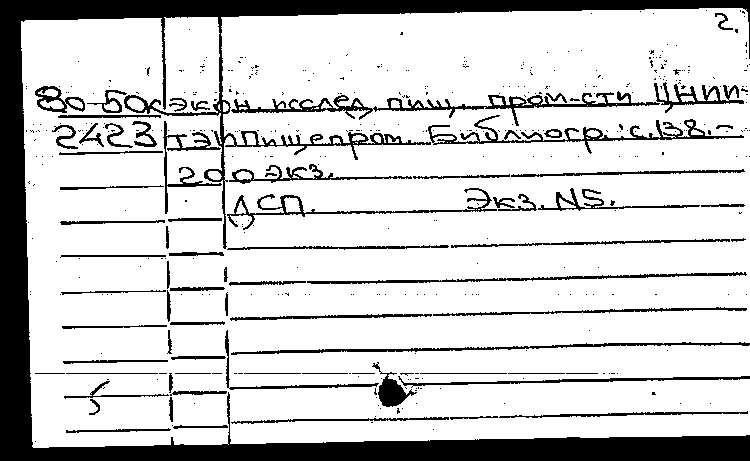 2.
80-50к экон. исслед. пищ. пром-сти ЦНИИ-
2423 ТЭИПищепром. Библиогр.: с.138.-
200 экз.
ДСП. Экз. N5.